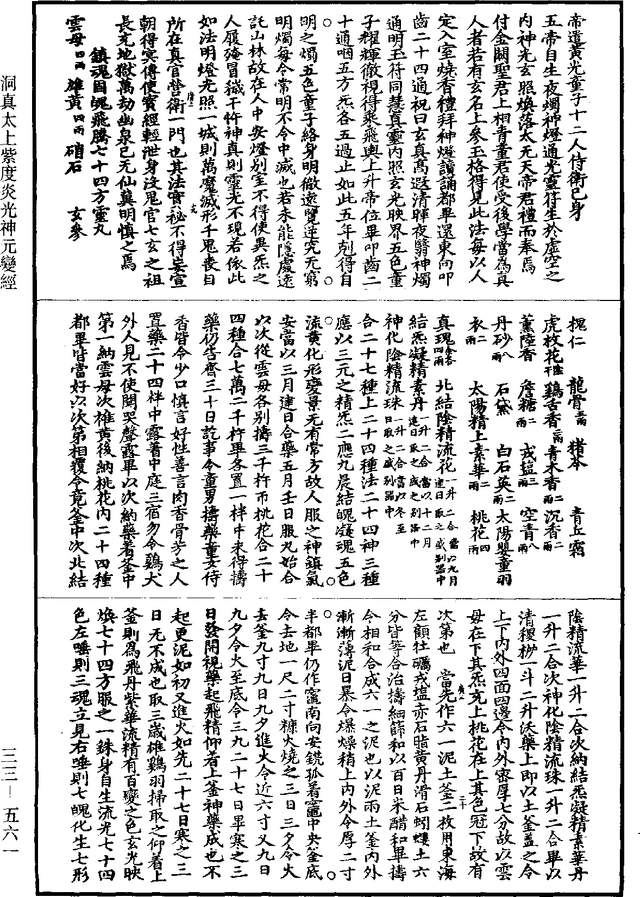 帝道黃光童子十二人侍衛己身
五帝自生夜燭神燈通光靈符生於虛空之
內神光玄照煥落太无天帝君禮而奉焉
付金闕聖君上相青童君使受後學當為真
人者若有玄名上參玉格得見此法每以人
定入室燒香禮拜神燈讀誦都畢還東向叩
齒二十四通祝曰玄真高遐清暉夜翳神燭
通明玉符同慧真靈內照玄光映界五色童
子耀輝徹視得乘飛輿上升帝位畢叩齒二
十通咽五方炁各五過止如此五年剋得自
明之燭五色童子絡身明徹遠覽逆究无窮
明燭每令常明不令中滅也若未能隱處遠
託山林故在人中安燈別室不得使異炁之
人履殗冒穢干忤神真則靈光不現若依此
如法明燈光照一城則萬魔滅形千鬼喪目
所在真官營衛一門也其法寶秘不得妄宣
朝得冥傳使寶經輕泄身沒鬼官七玄之祖
長充地獄萬劫幽泉己无仙冀明慎之焉
鎮魂固魄飛騰七十四方靈丸
雲母四兩 雄黃四兩 硝石 玄參
槐仁 龍骨二兩 豬苓 青丘霜
虎杖花 雞舌香 青木香 沉香
薰陸香 詹糖 戎鹽 空青
丹砂 石黛 白石英 太陽嬰童羽
衣 太陽精上素華 桃花
真瑰 北結陰精流花一升二合當以九月建日取之盛別器中
結炁凝精素丹一升二合當以十二月建日取之盛之別器中
神化陰精流珠一升二合當以冬至日取之盛別器中
合二十七種上二十四種法二十四神三種
應以三元之精炁二應九晨結魄凝魂五色
流黃化形變景无有常方故人服之神鎮氣
安當以三月建日合藥五月壬日服丸始合
以次從雲母各別擣三千杵而桃花合二十
四種合七萬二千杵畢各置一样中來得擣
藥仍告齋三十日訖事令童男擣藥童女侍
香皆令少口慎言好性善言肉香骨芳之人
置藥二十四样中露著中庭三宿勿令雞犬
外人見不使聞哭聲露畢以次納藥著釜中
第一納雲母次雄黃後納桃花內二十四種
都畢皆當好以次第相覆令竟釜中次北結
陰精流華一升二合次納結炁凝精素華丹
一升二合次神化陰精流珠一升二合畢以
清稷𥝖一斗二升沃藥上即以土釜蓋之令
上下內外四面四邊令內外密厚七分故以雲
母在下其炁充上桃花在上其色冠下故有
次第也 當先作六一泥土釜二枚用東海
左顧牡礪戎塩赤石脂黃丹滑石蚓螻土六
分皆等合治擣細篩和以百日米醋和畢擣
令相和合成六一之泥也以泥兩土釜內外
漸漸薄泥日暴令爆燥精上內外令厚二寸
半都畢仍作竈南向安鐵㧓著竈中央釜底
令去地一尺二寸糠火燒之三日三夕令火
去釜九寸九日九夕進火令近六寸又九日
九夕令火至底令三九二十七日畢寒之三
日發開視藥起飛精仰著上釜神藥成也不
起更泥如初又進火如先二十七日寒之三
日无不成也取三歲雄雞羽掃取之仰著上
釜則為飛丹紫華流精有百變之色玄光映
煥七十四方服之一銖身自生流光七十四
色左唾則三魂立見右唾則七魄化生七形
洞真太上紫度炎光神元變經
三三—五六一